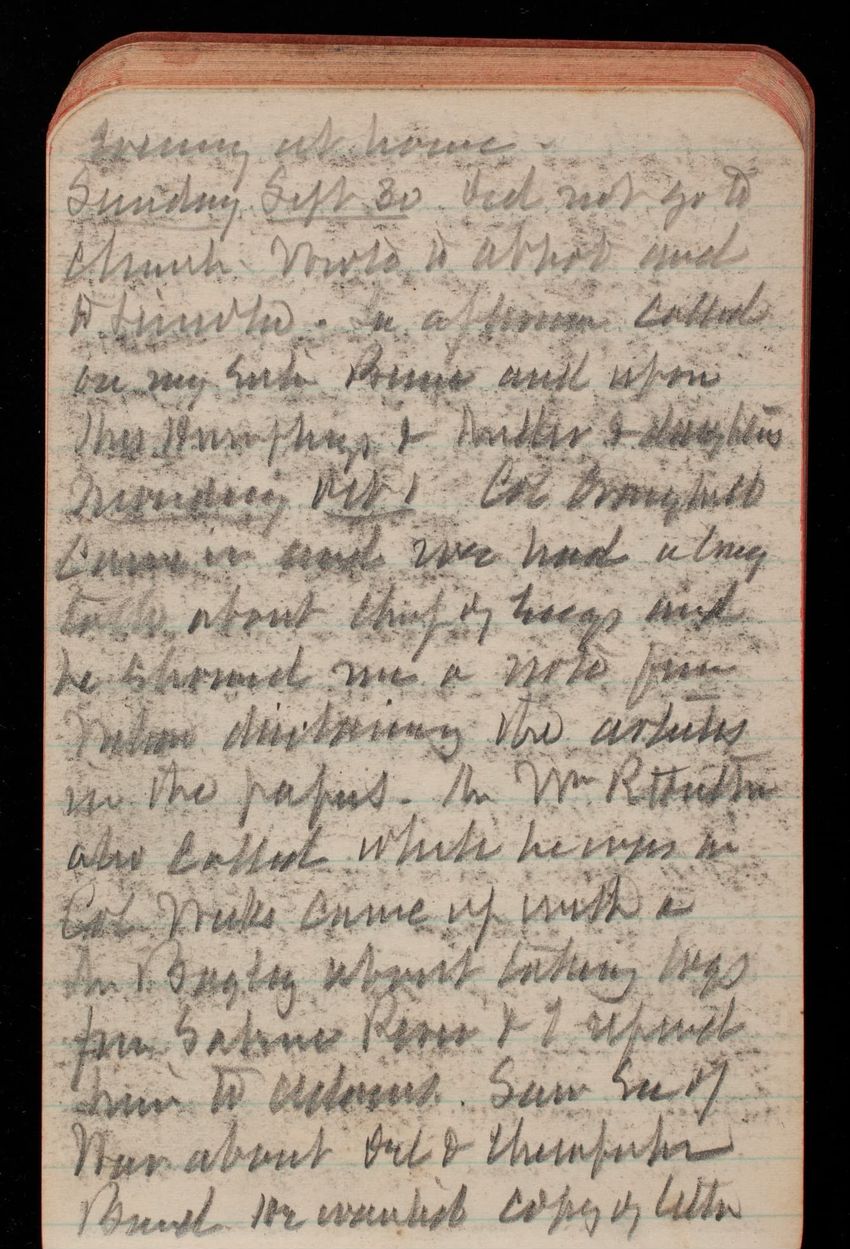 Evening at home.
Sunday Sept 30 Did not go to
Church. Wrote to Abbot and
to . In afternoon called
on my and upon
Mrs Humphreys & & daughters
Monday Oct 1 Col
Came in and we had a long
talk about Chief of Engs and
he showed me a note from
Wilson disclaiming the articles
in the papers. Mr Wm R Hutton
also called while he was in
Col Weeks came up with a
Mr Bagley about taking logs
from Sabine River & I referred
him to . Saw Sec of
War about Del & Chesapeake
Board He wanted copy of letter